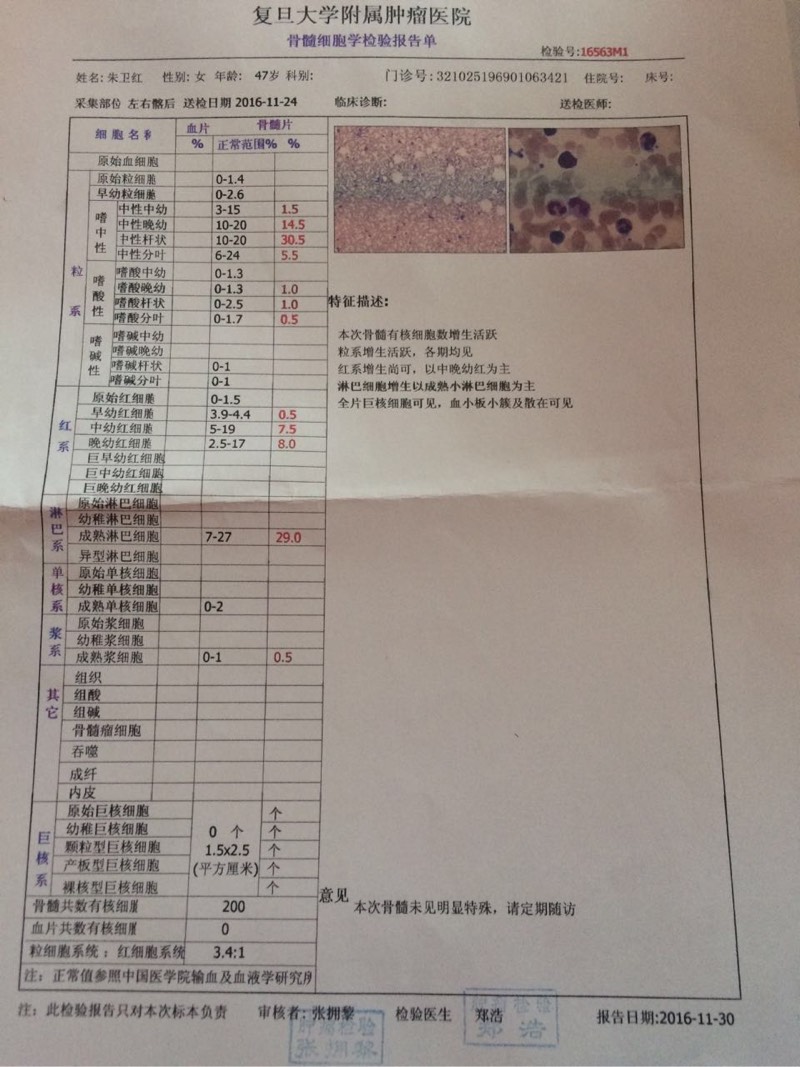 复旦大学附属肿瘤医院
骨髓细胞学检验报告单
检验号:16563M1
姓名: 朱卫红 性别: 女 年龄: 47岁 科别: 门诊号: 321025196901063421 住院号: 床号:
采集部位 左右髂后 送检日期 2016-11-24 临床诊断: 送检医师:
细胞名称 血片 骨髓片
% 正常范围% %
原始血细胞
粒系
原始粒细胞 0-1.4
早幼粒细胞 0-2.6
嗜中性
中性中幼 3-15 1.5
中性晚幼 10-20 14.5
中性杆状 10-20 30.5
中性分叶 6-24 5.5
嗜酸性
嗜酸中幼 0-1.3
嗜酸晚幼 0-1.3 1.0
嗜酸杆状 0-2.5 1.0
嗜酸分叶 0-1.7 0.5
嗜碱性
嗜碱中幼
嗜碱晚幼
嗜碱杆状 0-1
嗜碱分叶 0-1
红系
原始红细胞 0-1.5
早幼红细胞 3.9-4.4 0.5
中幼红细胞 5-19 7.5
晚幼红细胞 2.5-17 8.0
巨早幼红细胞
巨中幼红细胞
巨晚幼红细胞
淋巴系
原始淋巴细胞
幼稚淋巴细胞
成熟淋巴细胞 7-27 29.0
异型淋巴细胞
单核系
原始单核细胞
幼稚单核细胞
成熟单核细胞 0-2
浆系
原始浆细胞
幼稚浆细胞
成熟浆细胞 0-1 0.5
其它
组织
组酸
组碱
骨髓瘤细胞
吞噬
成纤
内皮
巨核系
原始巨核细胞 个
幼稚巨核细胞 0 个 个
颗粒型巨核细胞 1.5x2.5 个
产板型巨核细胞 (平方厘米) 个
裸核型巨核细胞 个
骨髓共数有核细胞 200
血片共数有核细胞 0
粒细胞系统：红细胞系统 3.4:1
注：正常值参照中国医学院输血及血液学研究所
特征描述:
本次骨髓有核细胞数增生活跃
粒系增生活跃，各期均见
红系增生尚可，以中晚幼红为主
淋巴细胞增生以成熟小淋巴细胞为主
全片巨核细胞可见，血小板小簇及散在可见
意见 本次骨髓未见明显特殊，请定期随访
注：此检验报告只对本次标本负责 审核者: 张拥黎 检验医生 郑浩 报告日期:2016-11-30
郑浩